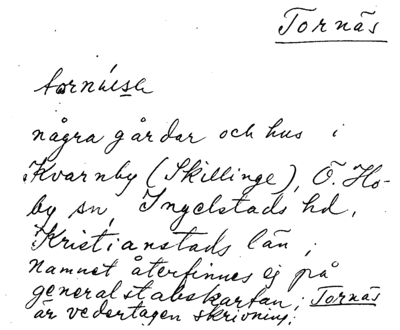 Tornäs
några gårdar och hus i
Kvarnby (Skillinge), Ö. Ho-
by sn, Ingelstads hd,
Kristianstads län;
Namnet återfinnes ej på
generalstabskartan; Tornäs
är vedertagen skrivning.